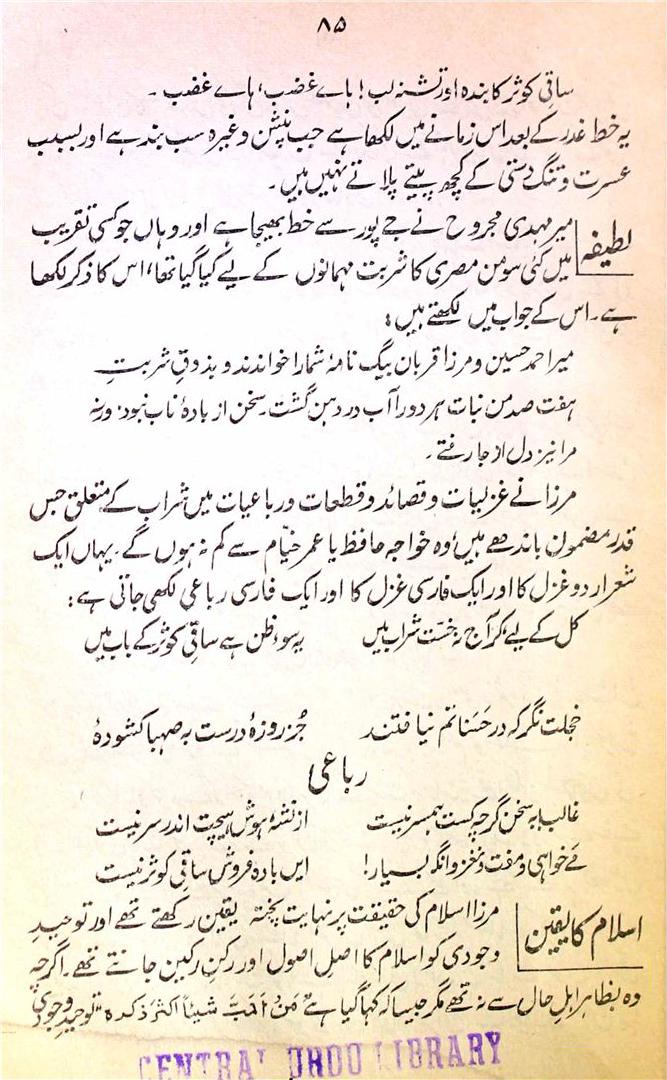 ۸۵
ساقیِ کوثر کا بندہ اور تشنہ لب! ہاے غضب، ہاے غضب ۔
یہ خط غدر کے بعد اس زمانے میں لکھا ہے جب پنشن وغیرہ سب بند ہے اور بسبب
عسرت و تنگ دستی کے کچھ پیتے پلاتے نہیں ہیں ۔
لطیفہ
میر مہدی مجروح نے جے پور سے خط بھیجا ہے اور وہاں جو کسی تقریب
میں کئی سو من مصری کا شربت مہمانوں کے لیے گیا گیا تھا، اس کا ذکر لکھا
ہے۔ اس کے جواب میں لکھتے ہیں:
میر احمد حسین و مرزا قربان بیگ نامۂ شما را خواندند و بذوقِ شربتِ
ہفت صد من نبات ہر دو را آب در دہن گشت۔ سخن از بادۂ ناب نبود۔ ورنہ
مرا نیز دل از جا رفتے ۔
مرزا نے غزلیات و قصائد و قطعات و رباعیات میں شراب کے متعلق جس
قدر مضمون باندھے ہیں، وہ خواجہ حافظ یا عمر خیّام سے کم نہ ہوں گے۔ یہاں ایک
شعر اردو غزل کا اور ایک فارسی غزل کا اور ایک فارسی رباعی لکھی جاتی ہے:
کل کے لیے کر آج نہ خسّت شراب میں یہ سوءِ ظن ہے ساقیِ کوثر کے باب میں
خجلت نگر کہ در حَسَناتم نیافتند جُز روزۂ درست بہ صہبا کشودۂ
رباعی
غالب بہ سخن گرچہ کست ہمسر نیست از نشۂ ہوش ہیچت اندر سر نیست
مَے خواہی و مفت و نغز وانگہ بسیار! ایں بادہ فروش ساقیِ کوثر نیست
اسلام کا یقین
مرزا اسلام کی حقیقت پر نہایت پختہ یقین رکھتے تھے اور توحیدِ
وجودی کو اسلام کا اصلِ اصول اور رکنِ رکین جانتے تھے۔ اگرچہ
وہ بظاہر اہلِ حال سے نہ تھے مگر جیسا کہ کہا گیا ہے مَنْ اَحَبَّ شیئًا اکثرَ ذکرہ" توحیدِ وجودی
CENTRAL URDU LIBRARY